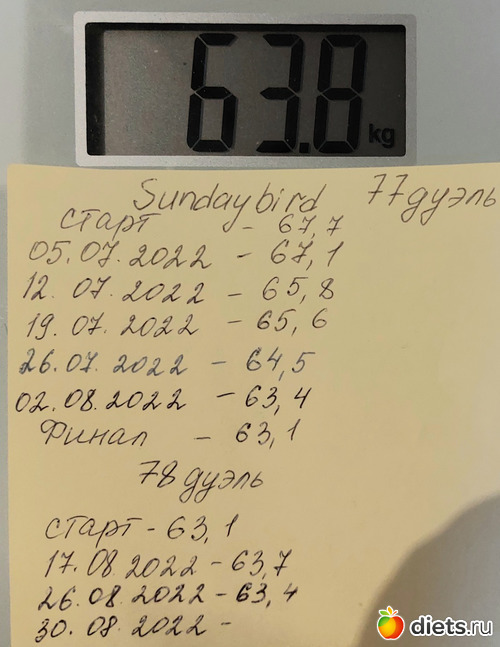 63.8 kg
Sundaybird 77 дуэль
старт - 67,7
05.07.2022 - 67,1
12.07.2022 - 65,8
19.07.2022 - 65,6
26.07.2022 - 64,5
02.08.2022 - 63,4
Финал - 63,1
78 дуэль
старт - 63,1
17.08.2022 - 63,7
26.08.2022 - 63,4
30.08.2022 -
diets.ru